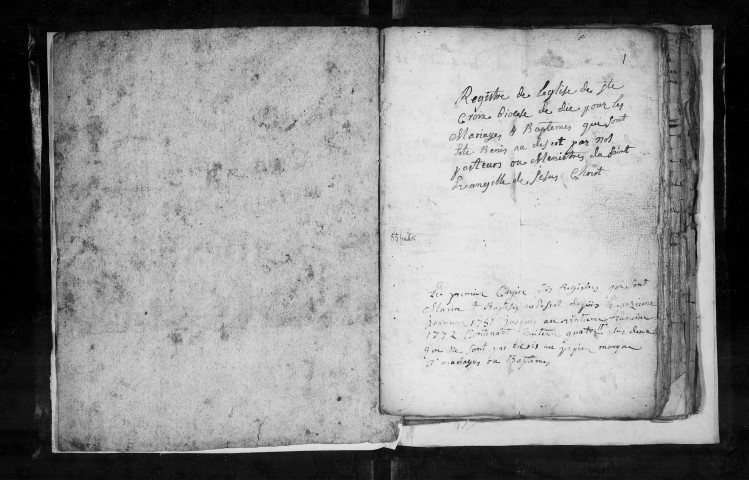 1
Registre de leglise de ste
Croix diocese de die pour les
Mariages & Baptemes qui sont
Eté Benis au desert par nos
pasteurs ou Ministres du Saint
Evangille de Jesus Christ
Le premier Cayier des Registres sur sont
Mariés & Baptisés au desert depuis le onzieme
1751 jusques au Janvier
1772 Contenant huitente quatre plus deux
que ne sont pas ecris au papier marqué
mariages ou Baptemes